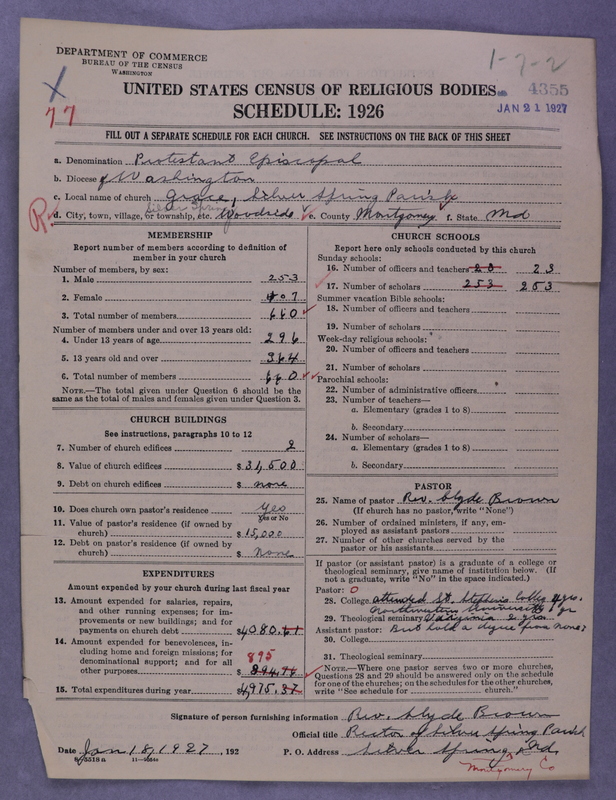 DEPARTMENT OF COMMERCE
BUREAU OF THE CENSUS
WASHINGTON
1-7-2
X
77
UNITED STATES CENSUS OF RELIGIOUS BODIES
4355
SCHEDULE: 1926
JAN 21 1927
FILL OUT A SEPARATE SCHEDULE FOR EACH CHURCH. SEE INSTRUCTIONS ON THE BACK OF THIS SHEET
a. Denomination Protestant Episcopal
b. Diocese of Washington
c. Local name of church Grace, Silver Spring Parish
Silver Spring
R. d. City, town, village, or township, etc. Woodside e. County Montgomery f. State Md
MEMBERSHIP
Report number of members according to definition of
member in your church
Number of members, by sex:
1. Male 253
2. Female 407
3. Total number of members 660
Number of members under and over 13 years old:
4. Under 13 years of age 296
5. 13 years old and over 364
6. Total number of members 660
NOTE.—The total given under Question 6 should be
same as the total of males and females given under Question 3.
CHURCH BUILDINGS
See instructions, paragraphs 10 to 12
7. Number of church edifices 2
8. Value of church edifices $31,500
9. Debt on church edifices $ none
10. Does church own pastor's residence Yes
Yes or No
11. Value of pastor's residence (if owned by
church) $15,000
12. Debt on pastor's residence (if owned by
church) $ None
EXPENDITURES
Amount expended by your church during last fiscal year
13. Amount expended for salaries, repairs,
and other running expenses; for im-
provements or new buildings; and for
payments on church debt $4080.61
14. Amount expended for benevolences, in-
cluding home and foreign missions; for
denominational support; and for all 895
other purposes $ 894.76
15. Total expenditures during year $4,975.37
CHURCH SCHOOLS
Report here only schools conducted by this church
Sunday schools:
16. Number of officers and teachers 23 23
17. Number of scholars 253 253
Summer vacation Bible schools:
18. Number of officers and teachers
19. Number of scholars
Week-day religious schools:
20. Number of officers and teachers
21. Number of scholars
Parochial schools:
22. Number of administrative officers
23. Number of teachers—
a. Elementary (grades 1 to 8)
b. Secondary
24. Number of scholars—
a. Elementary (grades 1 to 8)
b. Secondary
PASTOR
25. Name of pastor Rev. Clyde Brown
(If church has no pastor, write "None")
26. Number of ordained ministers, if any, em-
ployed as assistant pastors
27. Number of other churches served by the
pastor or his assistants
If pastor (or assistant pastor) is a graduate of a college or
theological seminary, give name of institution below. (If
not a graduate, write "No" in the space indicated.)
Pastor: 0
28. College attended St. Stephens College 4 yrs.
Northwestern University 1 yr
29. Theological seminary Virginia 2 years
Assistant pastor: But hold a degree from none
30. College
31. Theological seminary
NOTE.—Where one pastor serves two or more churches,
Questions 28 and 29 should be answered only on the schedule
for one of the churches; on the schedules for the other churches,
write "See schedule for church."
Signature of person furnishing information Rev. Clyde Brown
Official title Rector of Silver Spring Parish
Date Jan 18, 1927, 192 P. O. Address Silver Spring, Md.
8-5518 a
Montgomery Co